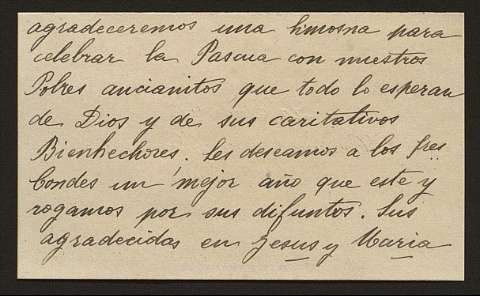 agradeceremos una limosna para
celebrar la Pascua con nuestros
Pobres ancianitos que todo lo esperan
de Dios y de sus caritativos
Bienhechores. Les deseamos a los Sres
Condes un mejor año que este y
rogamos por sus difuntos. Sus
agradecidas en Jesus y Maria